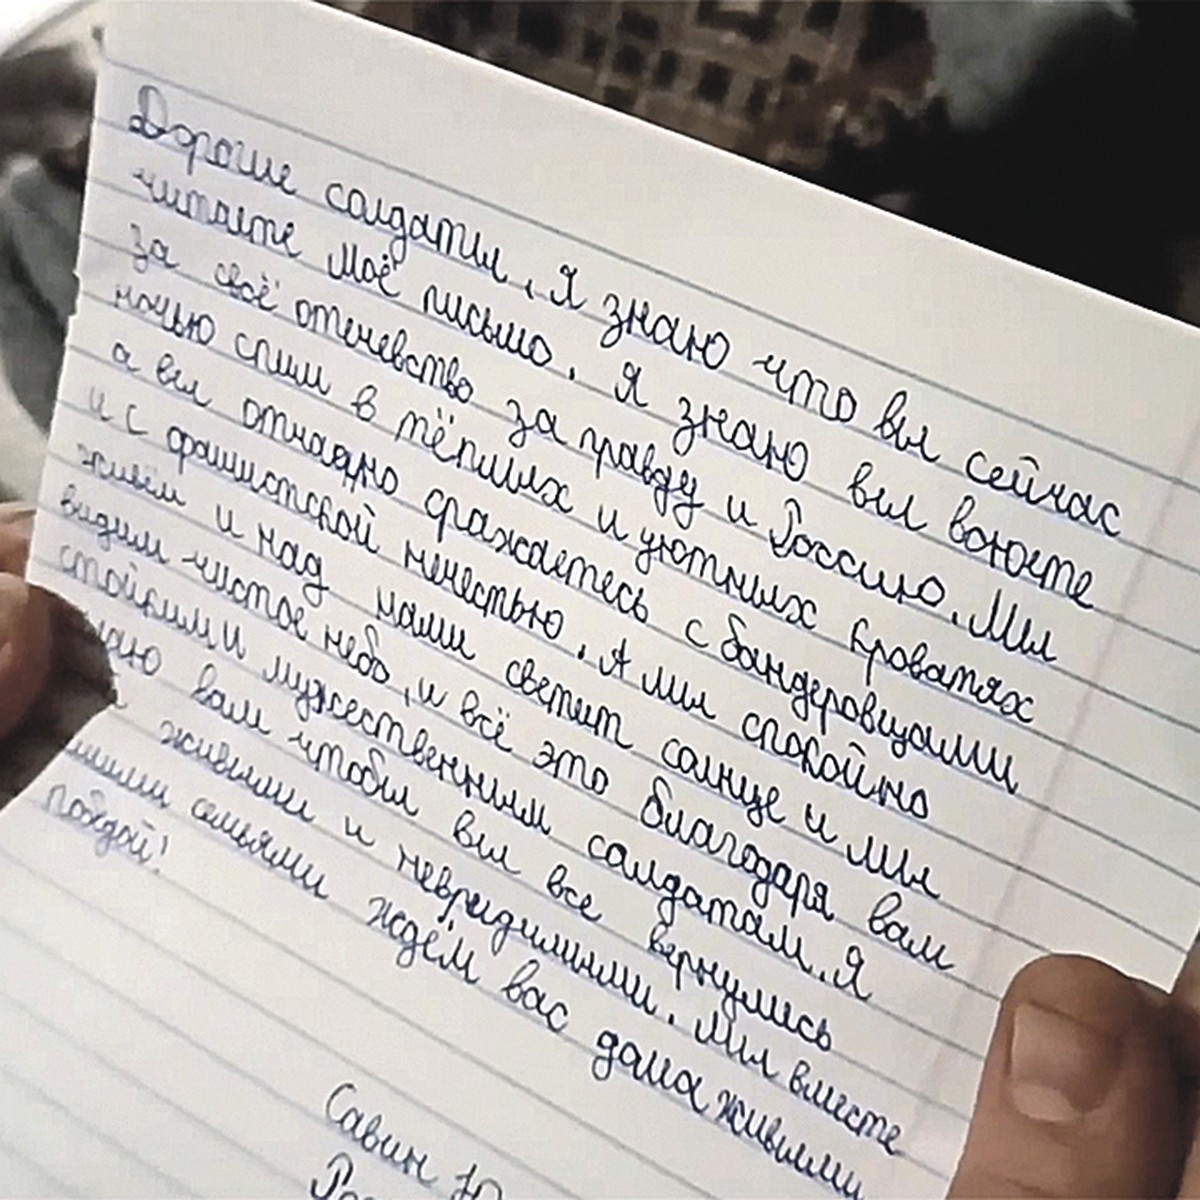 Дорогие солдаты, Я знаю что вы сейчас
читаете моё письмо. Я знаю вы воюете
за своё отечевство за правду и Россию. Мы
ночью спим в тёплых и уютных кроватях
а вы отчаяно сражаетесь с бандеровцами
и с фашистской нечестью. А мы спокойно
живём и над нами светит солнце и мы
видим чистое небо, и всё это благодаря вам
стойким и мужественным солдатам. Я
вам чтобы вы все вернулись
живыми и невридимыми. Мы вместе
семьями ждём вас дома живыми
победой!
Савин Ю